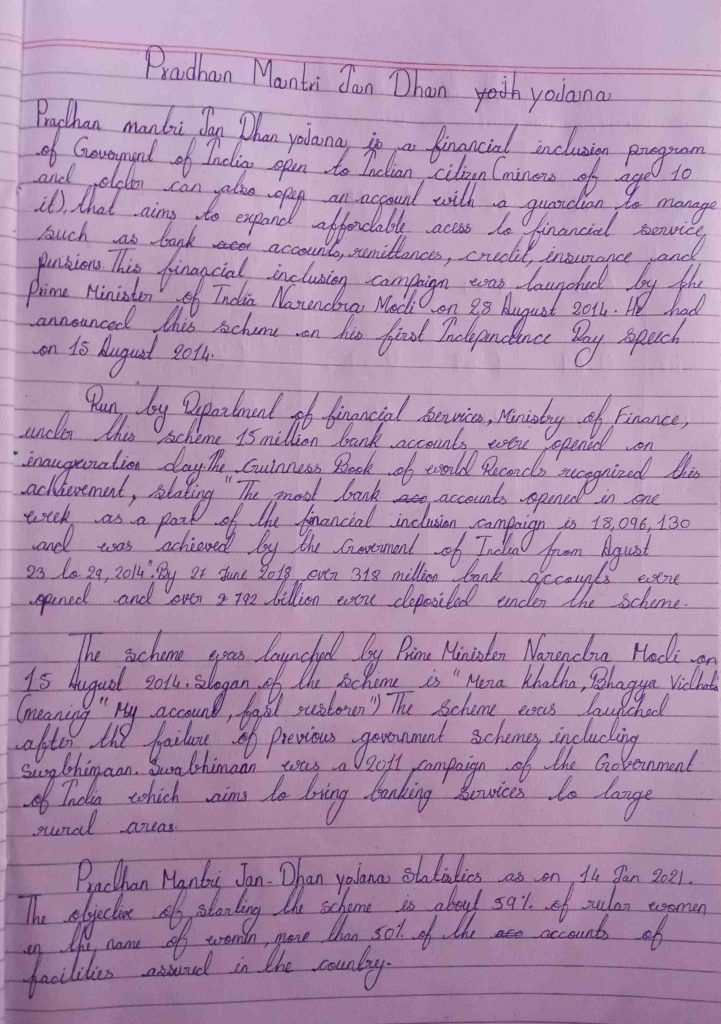 Pradhan Mantri Jan Dhan yojh yojana
Pradhan mantri Jan Dhan yojana is a financial inclusion program
of Goverment of India open to Indian citizen (minors of age 10
and older can also open an account with a guardian to manage
it), that aims to expand affordable acess to financial service,
such as bank aco accounts, remittances, credit, insurance and
pensions. This financial inclusion campaign was launched by the
Prime Minister of India Narendra Modi on 28 August 2014. He had
announced this scheme on his first Independence Day speech
on 15 August 2014.
Run by Department of financial services, Ministry of Finance,
under this scheme 15 million bank accounts were opened on
inauguration day. The Guinness Book of world Records recognized this
achievement, stating "The most bank aco accounts opened in one
week as a part of the financial inclusion campaign is 18,096,130
and was achieved by the Goverment of India from Agust
23 to 29, 2014". By 27 June 2018 over 318 million bank accounts were
opened and over ₹ 792 billion were deposited under the scheme.
The scheme was launched by Prime Minister Narendra Modi on
15 August 2014. Slogan of the scheme is "Mera Khatha, Bhagya Vidhata
(meaning "My account, fast restorer") The scheme was launched
after the failure of previous government schemes including
Swabhimaan. Swabhimaan was a 2011 campaign of the Government
of India which aims to bring banking services to large
rural areas.
Pradhan Mantri Jan-Dhan yojana statistics as on 14 Jan 2021.
The objective of starting the scheme is about 59% of rular women
in the name of women, more than 50% of the aco accounts of
facilities assured in the country.